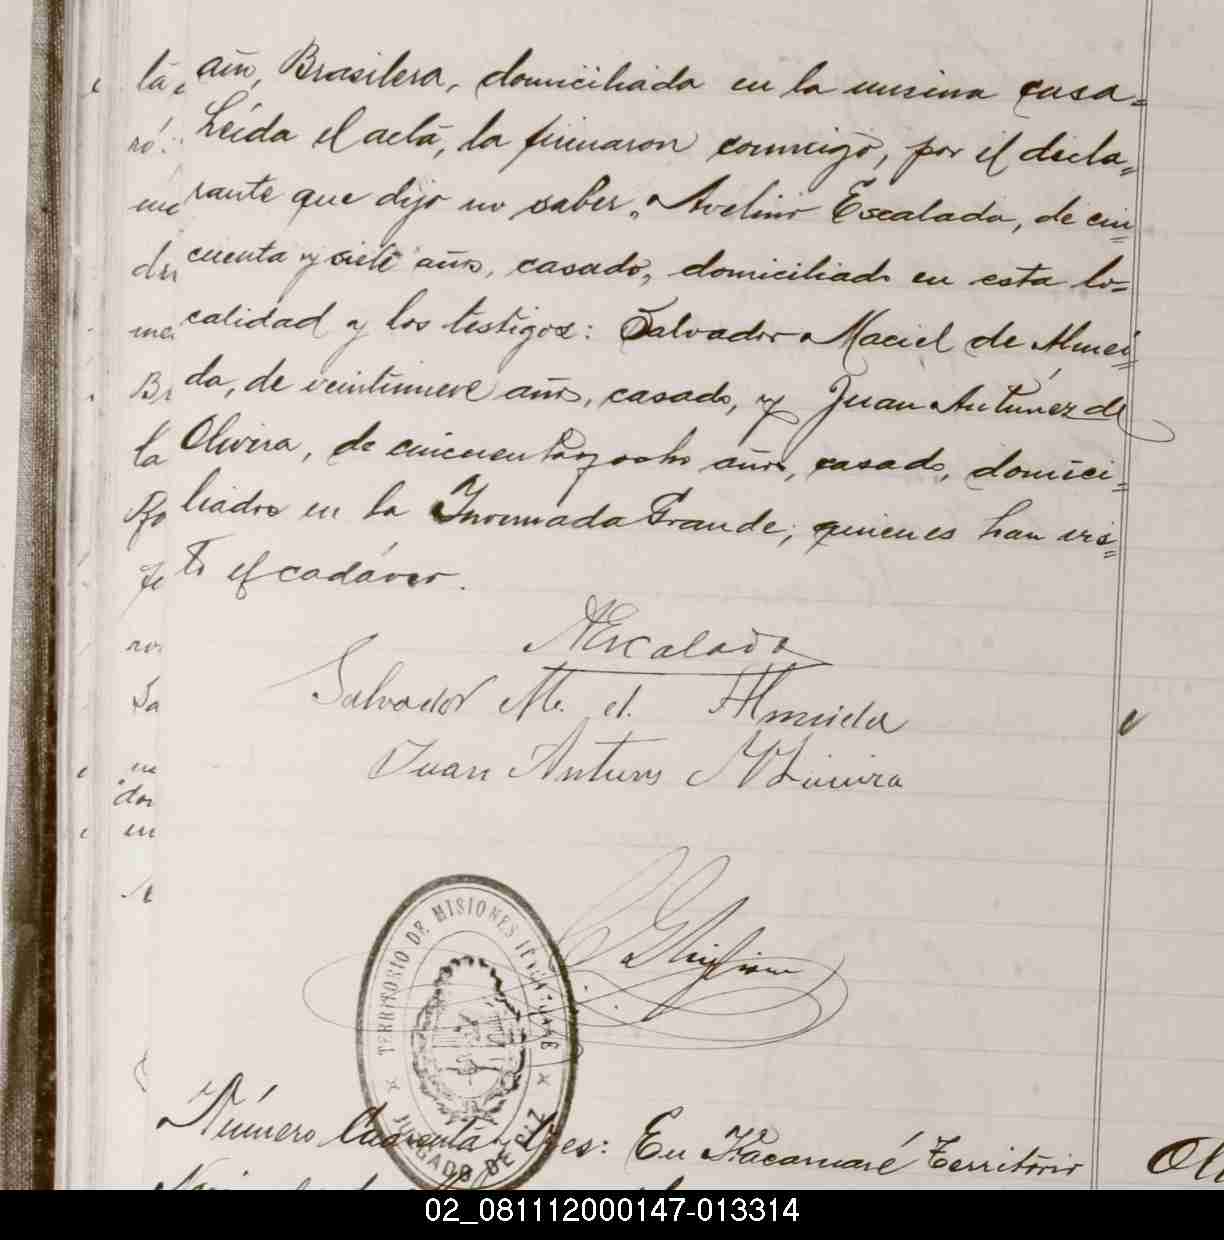 años, Brasilera, domiciliada en la misma casa.=
Leída el acta, la firmaron conmigo, por el decla=
rante que dijo no saber, Avelino Escalada, de cin=
cuenta y siete años, casado, domiciliado en esta lo=
calidad y los testigos: Salvador Maciel de Almei=
da, de veintinueve años, casado, y Juan Antunez de
Olivira, de cincuenta y ocho años, casado, domici=
liados en la Invernada Grande, quienes han vis=
to el cadáver.
AEscalada
Salvador M. d. Almieda
Juan Antuns
TERRITORIO DE MISIONES
JUZGADO DE PAZ
Número Cuarenta y tres: En Itacaruaré Territorio
02_081112000147-013314